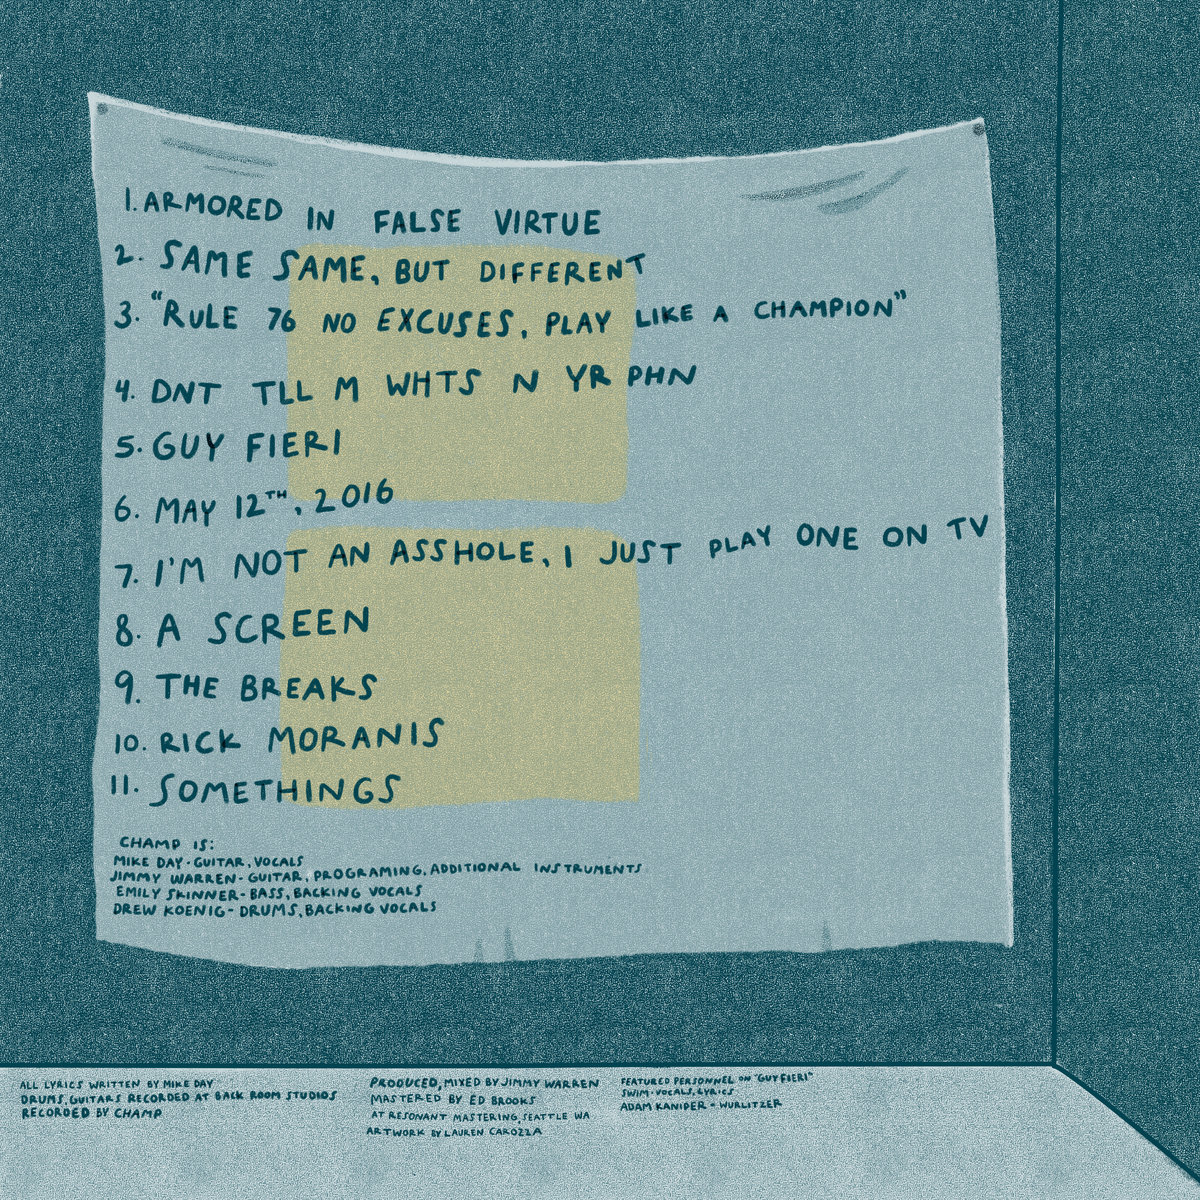 1. ARMORED IN FALSE VIRTUE
2. SAME SAME, BUT DIFFERENT
3. "RULE 76 NO EXCUSES, PLAY LIKE A CHAMPION"
4. DNT TLL M WHTS N YR PHN
5. GUY FIERI
6. MAY 12TH, 2016
7. I'M NOT AN ASSHOLE, I JUST PLAY ONE ON TV
8. A SCREEN
9. THE BREAKS
10. RICK MORANIS
11. SOMETHINGS
CHAMP IS:
MIKE DAY - GUITAR, VOCALS
JIMMY WARREN - GUITAR, PROGRAMING, ADDITIONAL INSTRUMENTS
EMILY SKINNER - BASS, BACKING VOCALS
DREW KOENIG - DRUMS, BACKING VOCALS
ALL LYRICS WRITTEN BY MIKE DAY
DRUMS, GUITARS RECORDED AT BACK ROOM STUDIOS
RECORDED BY CHAMP
PRODUCED, MIXED BY JIMMY WARREN
MASTERED BY ED BROOKS
AT RESONANT MASTERING, SEATTLE WA
ARTWORK BY LAUREN CAROZZA
FEATURED PERSONNEL ON "GUY FIERI"
SWIM - VOCALS, LYRICS
ADAM KANIPER - WURLITZER